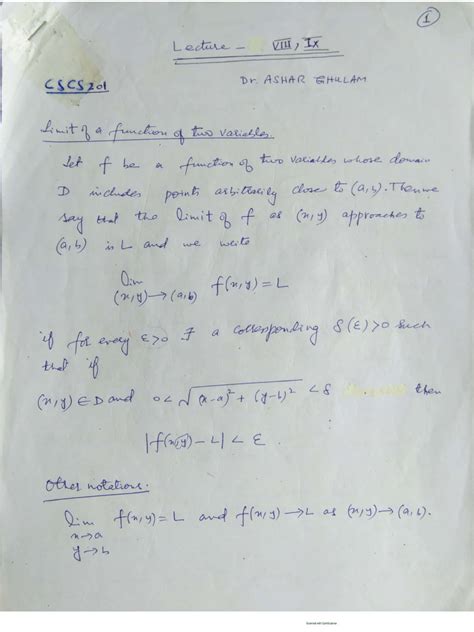 1
Lecture - VIII, IX
CSCS201
Dr. ASHAR GHULAM
Limit of a function of two variables.
Let f be a function of two variables whose domain
D includes points arbitrarily close to (a,b). Then we
say that the limit of f as (x,y) approaches to
(a,b) is L and we write
lim f(x,y) = L
(x,y)→(a,b)
if for every ε>0 ∃ a corresponding δ(ε)>0 such
that if
(x,y) ∈ D and 0 < √(x-a)² + (y-b)² < δ then
|f(x,y) - L| < ε.
Other notations:
lim f(x,y) = L and f(x,y) → L as (x,y) → (a,b).
x→a
y→b
Scanned with CamScanner